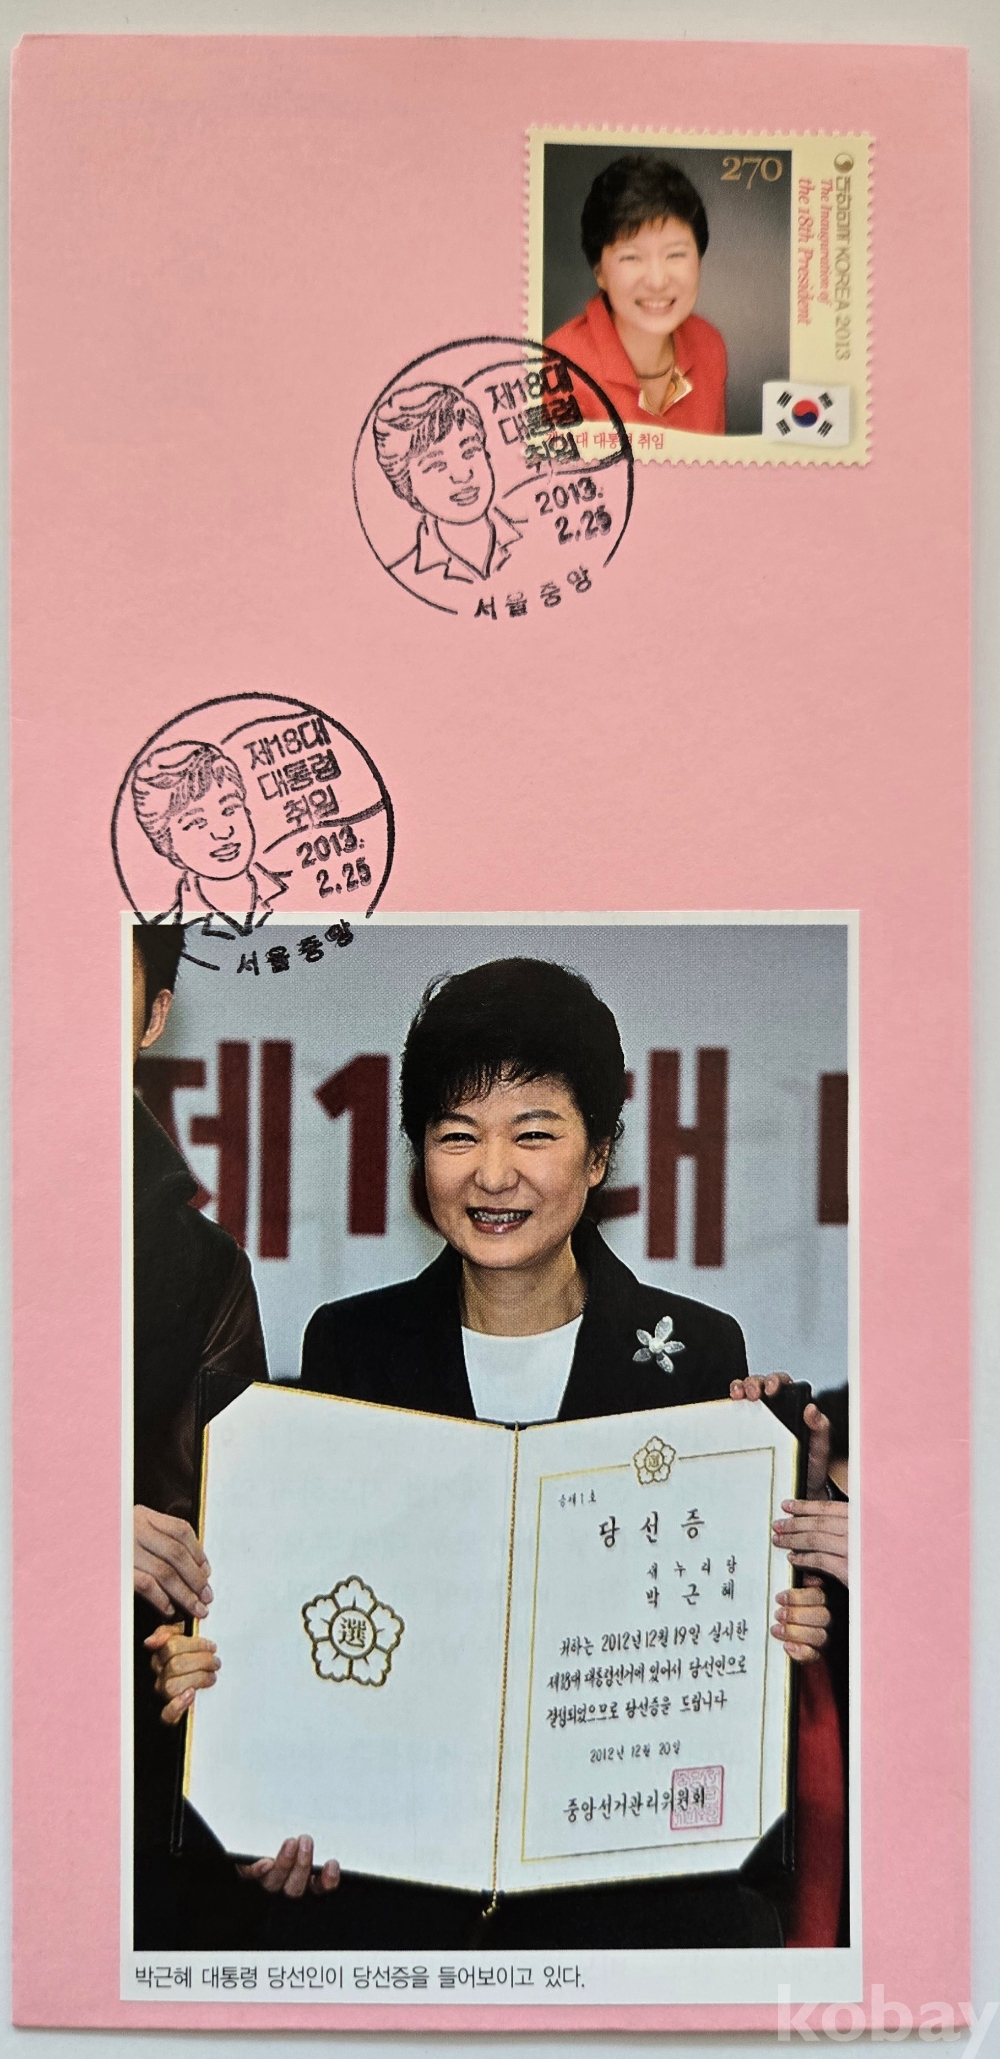 270
대한민국 KOREA 2013
The Inauguration of
the 18th President
대 대통령 취임
제18대
대통령
취임
2013.
2.25
서울중앙
제18대
대통령
취임
2013.
2.25
서울중앙
제1 대
選
選
당선증
새누리당
박근혜
귀하는 2012년 12월 19일 실시한
제18대 대통령선거에 있어서 당선인으로
결정되었으므로 당선증을 드립니다
2012년 12월 20일
중앙선거관리위원회
박근혜 대통령 당선인이 당선증을 들어보이고 있다.
kobay